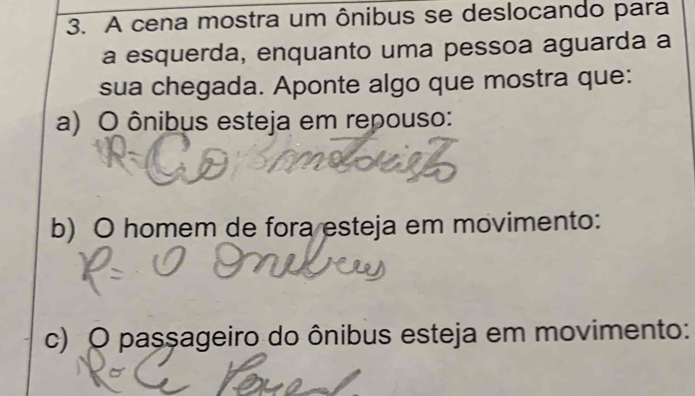 3. A cena mostra um ônibus se deslocando para
a esquerda, enquanto uma pessoa aguarda a
sua chegada. Aponte algo que mostra que:
a) O ônibus esteja em repouso:
R= motoristo
b) O homem de fora esteja em movimento:
R= O Onebus
c) O passageiro do ônibus esteja em movimento:
R=